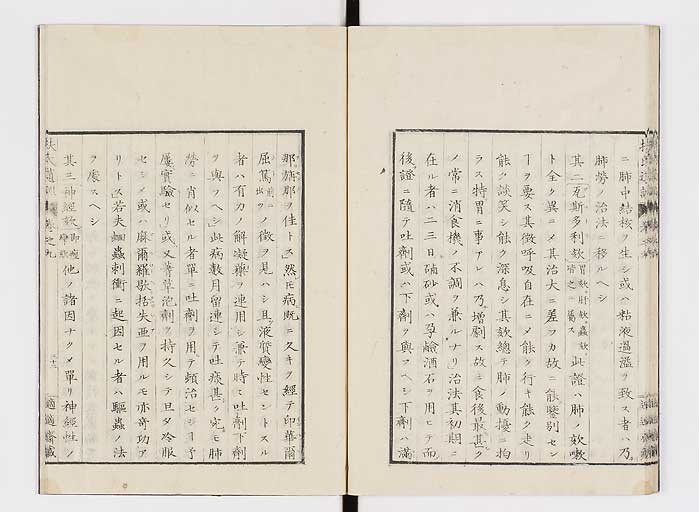 ニ肺中結核ヲ生シ或ハ粘液過溢ヲ致ス者ハ乃
肺労ノ治法ニ移ルヘシ
其二瓦斯多利欬 胃欬肝欬蟲欬皆之ニ属ス 此證ハ肺ノ欬嗽
ト全ク異ニメ其治大ニ差フカ故ニ能鑒別セン
ヿヲ要ス其徴呼吸自在ニメ能ク行キ能ク走リ
能ク談笑シ能ク深息シ其欬總テ肺ノ動擾ニ拘
ラス特胃ニ事アレハ乃増劇ス故ニ食後最甚ク
ノ常ニ消食機ノ不調ヲ兼ルナリ治法其初期ニ
在ル者ハ二三日磠砂或ハ孕鹼酒石ヲ用ヒテ而
後證ニ随テ吐剤或ハ下剤ヲ與フヘシ下剤ハ満
那旃那ヲ佳トス然㇓病既ニ久キヲ経テ印華爾
屈篤 前ニ出ツ ノ徴ヲ見ハシ且液質變性セントスル
者ハ有力ノ解凝藥ヲ連用シ兼テ時々吐剤下剤
ヲ與フヘシ此病數月留連シテ吐痰甚ク宛モ肺
労ニ肖似セル者單ニ吐剤ヲ用テ頓治セシヿ予
屢實驗セリ或又菁草泡剤ヲ持久シテ旦夕冷服
セシメ或ハ麻爾羅歇括失畫ヲ用ルモ亦奇功ア
リトス若夫蛔蟲刺衝ニ起因セル者ハ驅蟲ノ法
ヲ處スヘシ
其三神經欬 他ノ諸因ナクメ單リ神經性ノ
扶氏遺訓 巻之九
適適齋藏